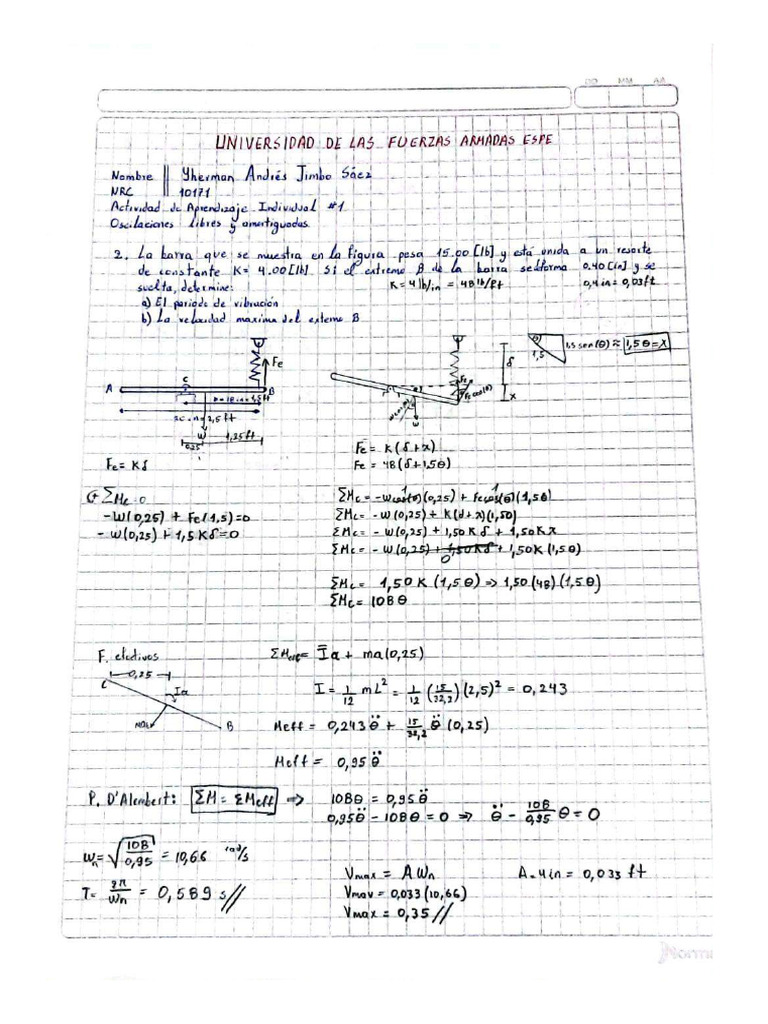 DD MM AA
UNIVERSIDAD DE LAS FUERZAS ARMADAS ESPE
Nombre || Yherman Andrés Jimbo Sáez
NRC || 10171
Actividad de Aprendizaje Individual #1
Oscilaciones libres y amortiguadas
2. La barra que se muestra en la figura pesa 15.00 [lb] y está unida a un resorte
de constante K= 4.00 [lb]. Si el extremo B de la barra se forma 0.40 [in] y se
suelta, determine: K = 4 lb/in = 48 lb/ft 0,4 in = 0,03 ft
a) El periodo de vibración
b) La velocidad máxima del extemo B
Fe
A C B
1,5 ft
2,5 ft
W 1,25 ft
0,25
δ
x
Fe
Fe cos(θ)
W
θ
1,5
1,5 sen(θ) ≈ 1,5θ = x
Fe = Kδ
Fe = K(δ+x)
Fe = 48(δ+1,5θ)
ΣMc = 0
-W(0,25) + Fe(1,5) = 0
-W(0,25) + 1,5Kδ = 0
ΣMc = -W cos(θ)(0,25) + Fe cos(θ)(1,50)
1 1
ΣMc = -W(0,25) + K(δ+x)(1,50)
ΣMc = -W(0,25) + 1,50Kδ + 1,50Kx
ΣMc = -W(0,25) + 1,50Kδ + 1,50K(1,5θ)
0
ΣMc = 1,50K(1,5θ) => 1,50(48)(1,5θ)
ΣMc = 108θ
F. efectivos
0,25
C
Iα
B
ΣMeff = Īα + ma(0,25)
I = 1/12 mL² = 1/12 (15/32,2)(2,5)² = 0,243
Meff = 0,243θ̈ + 15/32,2 θ̈ (0,25)
Meff = 0,95θ̈
P. D'Alembert: ΣM = ΣMeff => 108θ = 0,95θ̈
0,95θ̈ - 108θ = 0 => θ̈ - 108/0,95 θ = 0
Wn = √108/0,95 = 10,66 rad/s
T = 2π/Wn = 0,589 s//
Vmax = A Wn
Vmax = 0,033(10,66)
Vmax = 0,35//
A = 4in = 0,033 ft